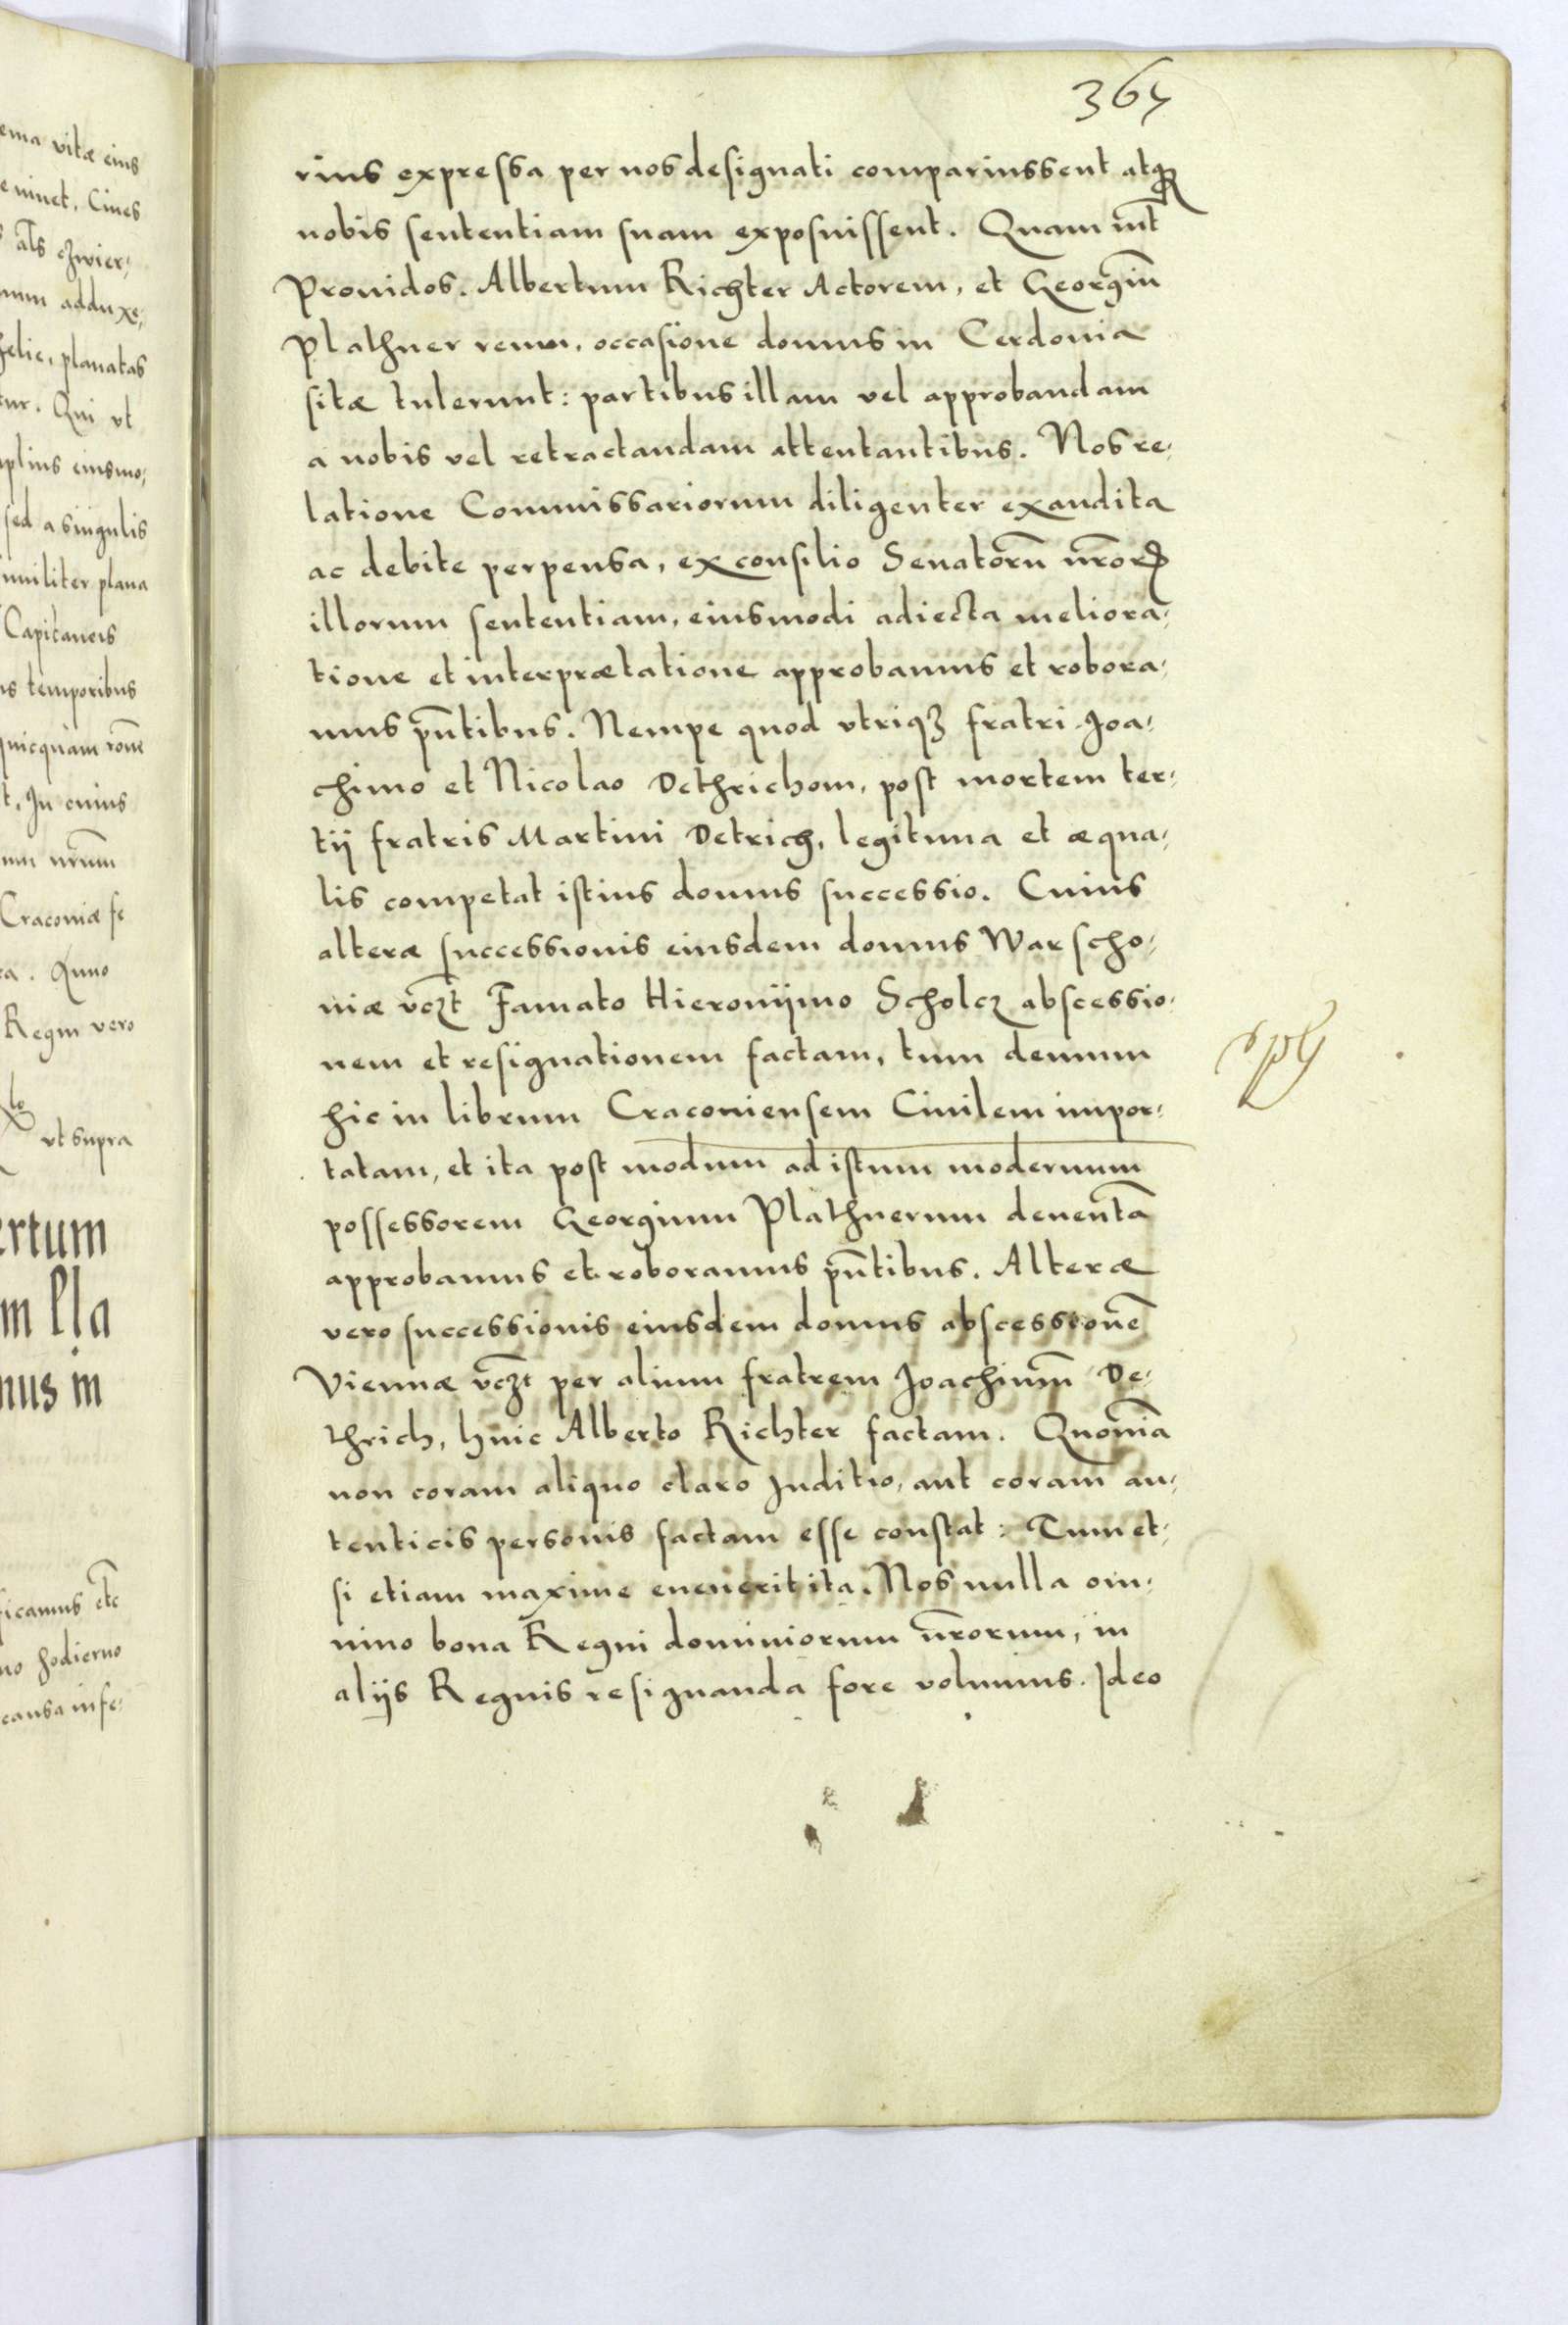 ema vitæ eius
eniuet, Ciues
als Czwier,
num adduxe,
felic, planatas
tur. Qui vt
mplius eiusmo,
sed a singulis
militer plana
Capitaneis
us temporibus
quicquam rone
t. In cuius
um nrum
Cracouiæ fe
ra. Anno
Regni vero
vt supra
ertum
m lla
nus in
ficamus etc
no hodierno
causa infe,
367
rius expressa per nos designati comparuissent atque
nobis sententiam suam exposuissent. Quam int
Prouidos. Albertum Richter Actorem, et Georgiū
Plathner reum, occasione domus in Cerdonia
sitæ tulerunt: partibus illam vel approbandam
a nobis vel retractandam attentantibus. Nos re,
latione Commissariorum diligenter exaudita
ac debite perpensa, ex consilio Senatorū nrorum
illorum sententiam, eiusmodi adiecta meliora,
tione et interprætatione approbamus et robora,
mus pñtibus. Nempe quod vtriqȝ fratri Joa,
chimo et Nicolao Dethrichom, post mortem ter,
tij fratris Martini Detrich, legitima et æqua,
lis competat istius domus successio. Cuius
alteræ successionis eiusdem domus Warscho,
uiæ vczt Famato Hieronijmo Scholcz abscessio,
nem et resignationem factam, tum demum
hic in librum Cracouiensem Ciuilem impor,
tatam, et ita post modum ad istum modernum
possessorem Georgium Plathnerum deuentā
approbamus et roboramus pñtibus. Alteræ
vero successionis eiusdem domus abscessionē
Viennæ vczt per alium fratrem Joachimum De,
thrich, huic Alberto Richter factam. Quoniā
non coram aliquo claro Juditio, aut coram au,
tenticis personis factam esse constat: Tumet,
si etiam maxime euenerit ita. Nos nulla om,
nino bona Regni dominiorum nrorum, in
alijs Regnis resignanda fore volumus. Ideo